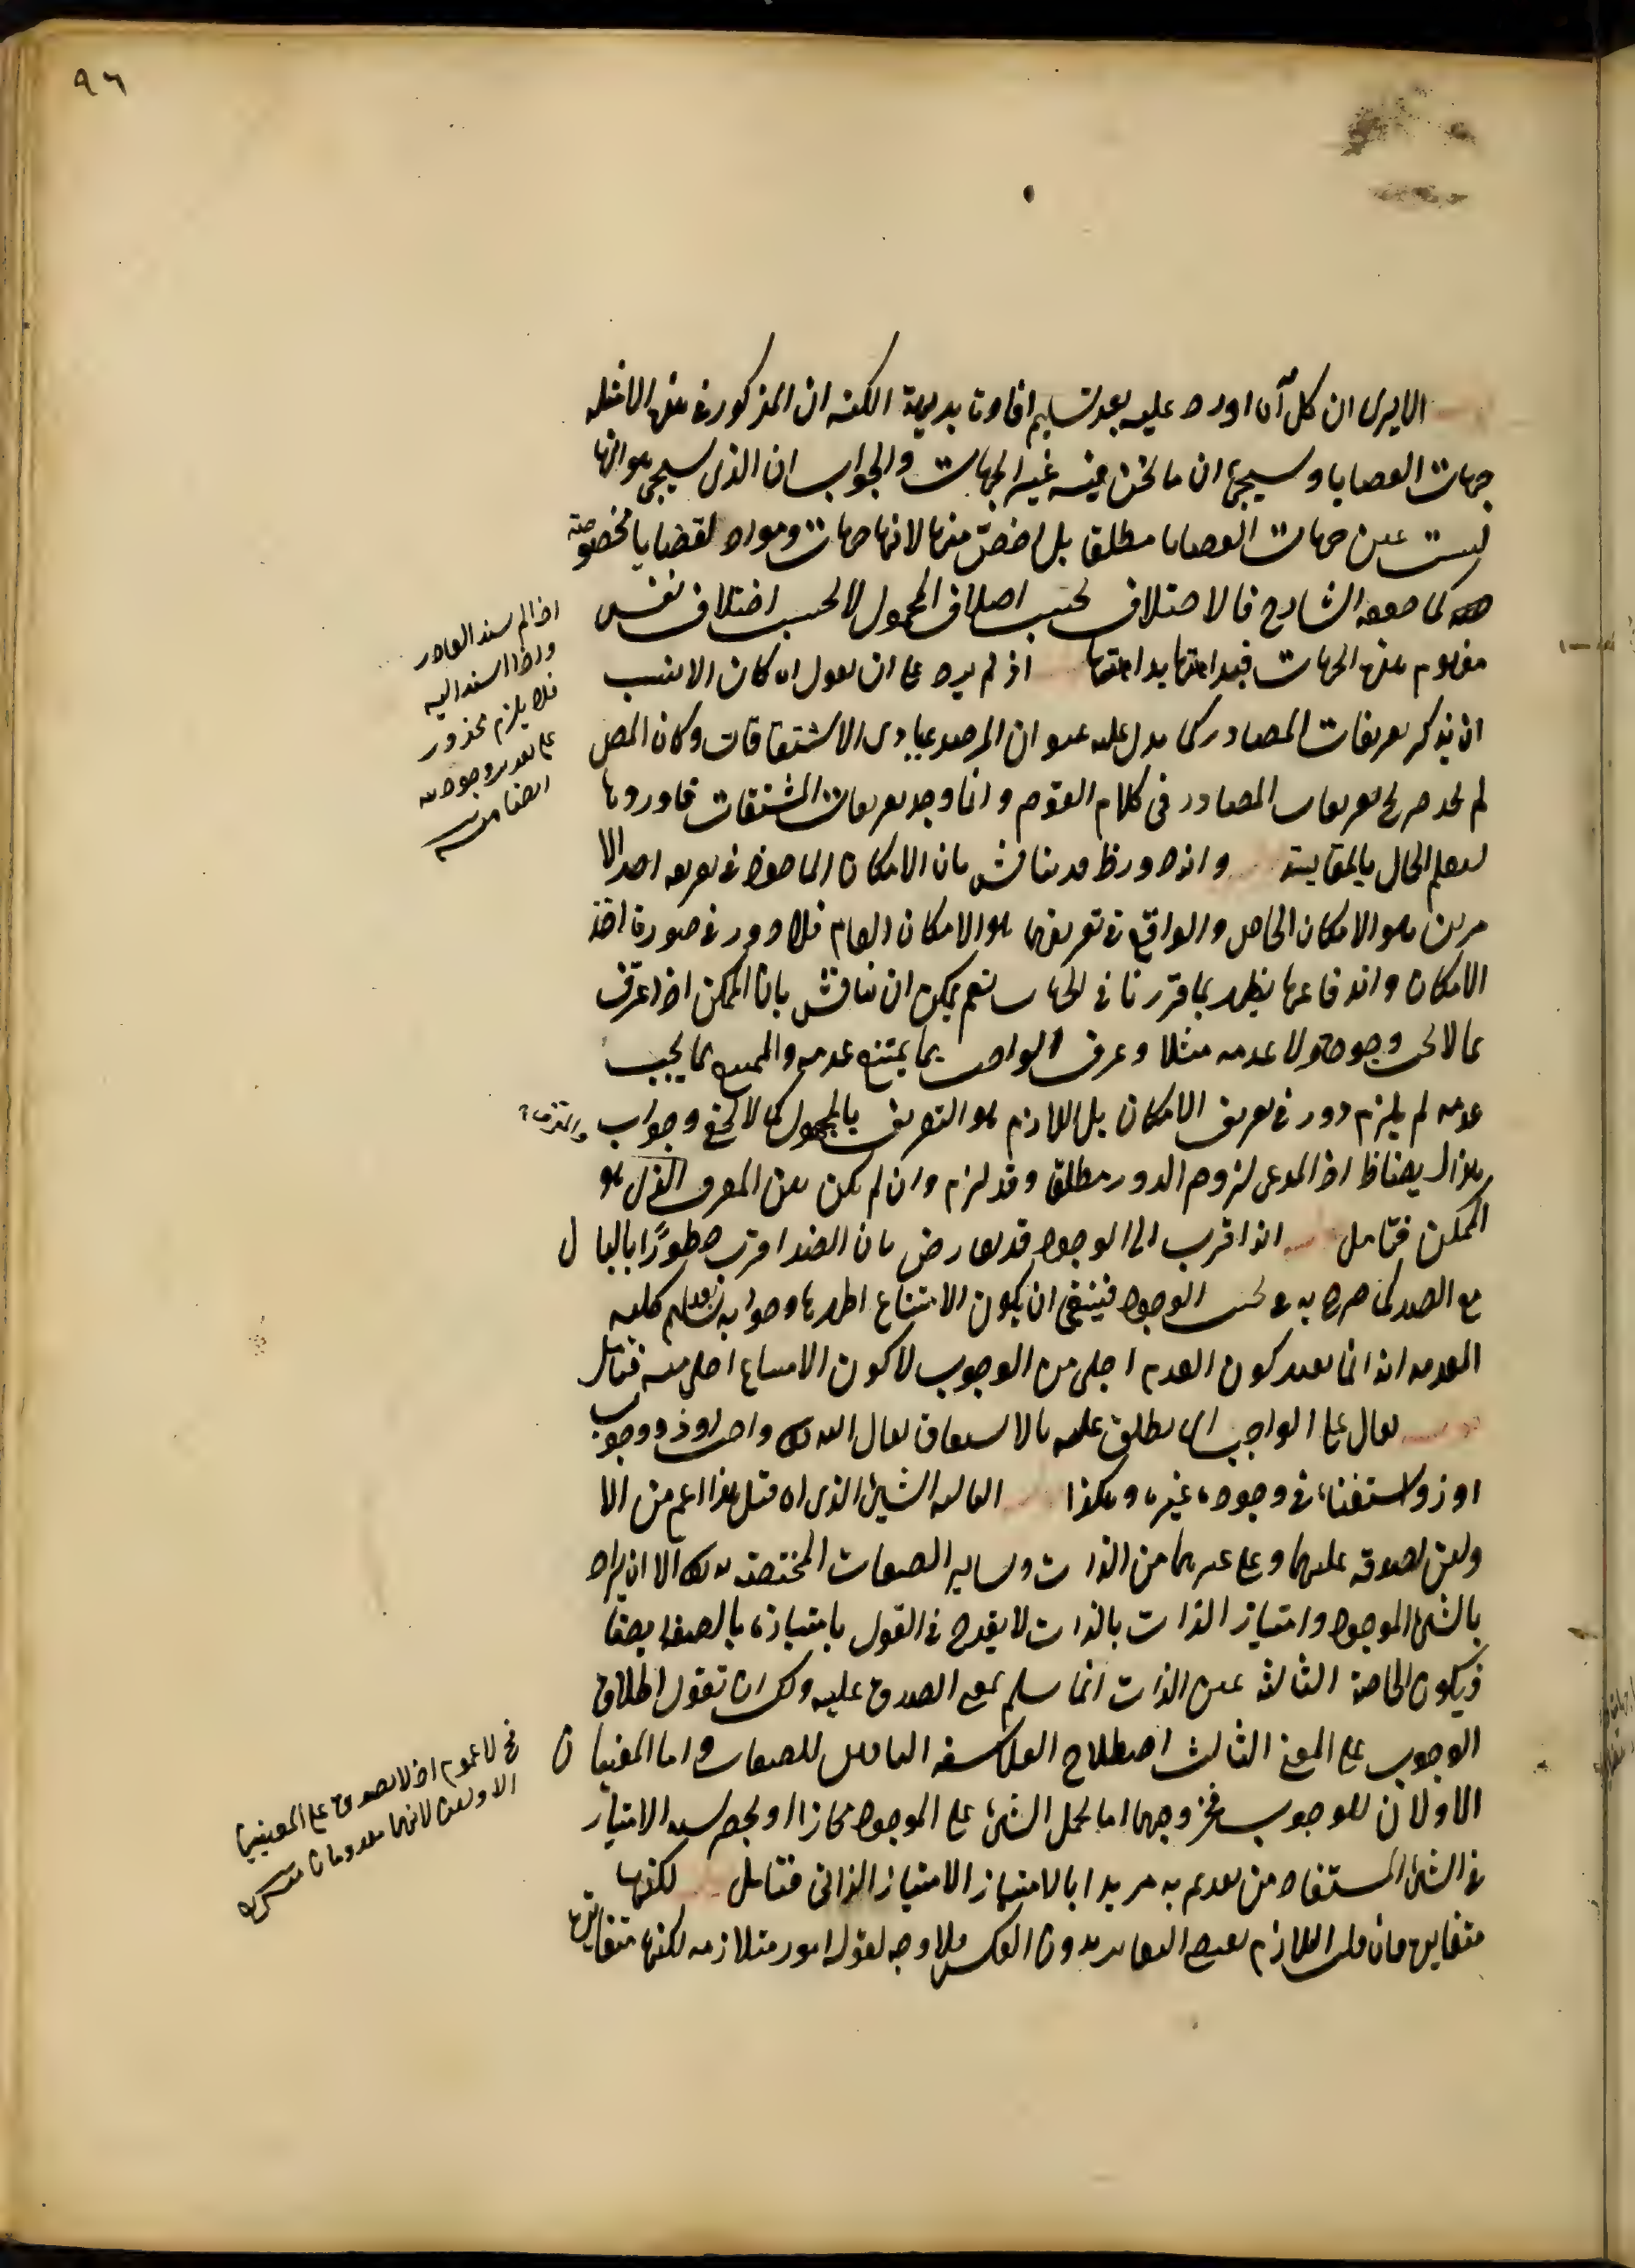 ٩٦
الا يرى ان كل آن اورد عليه بعد تسليم افادتنا بديهة الكنه ان المذكور في هذه الامثلة
جهات القضايا وسيجئ ان ما نحن فيه غير الجهات والجواب ان الذى سيجئ هو انها
ليست عين جهات القضايا مطلقا بل اخص منها لانها جهات ومواد لقضايا مخصوصة
كما حققه الشارح فالاختلاف بحسب اختلاف المحمول لا بحسب اختلاف نفس
مفهوم هذه الجهات فبداهتها بداهتها اذ لم يرد على ان يقول ان كان الانسب
ان يذكر تعريفات المصادر كما يدل عليه عنوان المرصد بمبادى الاشتقاقات وكان المص
لم يجد صريح تعريفات المصادر في كلام القوم وانما وجد تعريفات المشتقات فاوردها
ليعلم الحال بالمقايسة وانه دور ظ قد يناقش بان الامكان الماخوذ في تعريف احد الا
مرين هو الامكان الخاص والواقع في تعريفهما هو الامكان العام فلا دور في صورة اخذ
الامكان واندفاعها يظهر بما قررنا في نعم يمكن ان يناقش بان الممكن اذا عرف
بما لا يجب وجوده ولا عدمه مثلا وعرف الواجب بما يمتنع عدمه والممتنع بما يجب
عدمه لم يلزم دور في تعريف الامكان بل اللازم هو التعريف بالمجهول كما لا يخفى وجواب
هذا ايضا ظ اذ المدعى لزوم الدور مطلقا وقد لزم وان لم يكن بعين المعرف الذى هو
الممكن فتامل انه اقرب الى الوجود قد يعارض بان الضد اقرب خطورا بالبال
مع الضد كما صرح به الوجود فينبغى ان يكون الامتناع اظهرها وجوابه بعد تسليم كلية
المقدمة انه انما يفيد كون العدم اجلى من الوجوب لا كون الامتناع اجلى منه فتامل
يقال على الواجب اى يطلق عليه بالاشتقاق يقال الله تعالى واجب او ذو وجوب
او ذو استغناء في وجوده عن غيره وهكذا الثالث الشئ الذى اه قيل هذا اعم من الا
ولين لصدقه عليهما وعلى غيرهما من الذات وساير الصفات المختصة بذلك الا ان يراد
بالشئ الموجود وامتياز الذات بالذات لا يقدح في القول بامتيازه بالصفات ايضا
فيكون الخاصة الثالثة عين الذات انما يسلم بمعنى الصدق عليه ولك ان تقول اطلاق
الوجوب على المعنى الثالث اصطلاح الفلاسفة النافين للصفات واما المعنيان
الاولان للوجوب وجهها اما بحمل الشئ على الموجود مجازا او بحصر الامتياز
في الشئ المستفاد من تقديم به مريدا بالامتياز الامتياز الذاتى فتامل لكنها
متغايرة فان قلت التلازم يقتضى التغاير بدون العكس فلا وجه لقوله امور متلازمة لكنها متغايرة
اذا لم يسند الصادر
واذا اسند اليه
فلا يلزم محذور
على تقدير وجوديته
ايضا منه
فح لا عموم اذ لا يصدق على المعنيين
الاولين لانهما معدومان